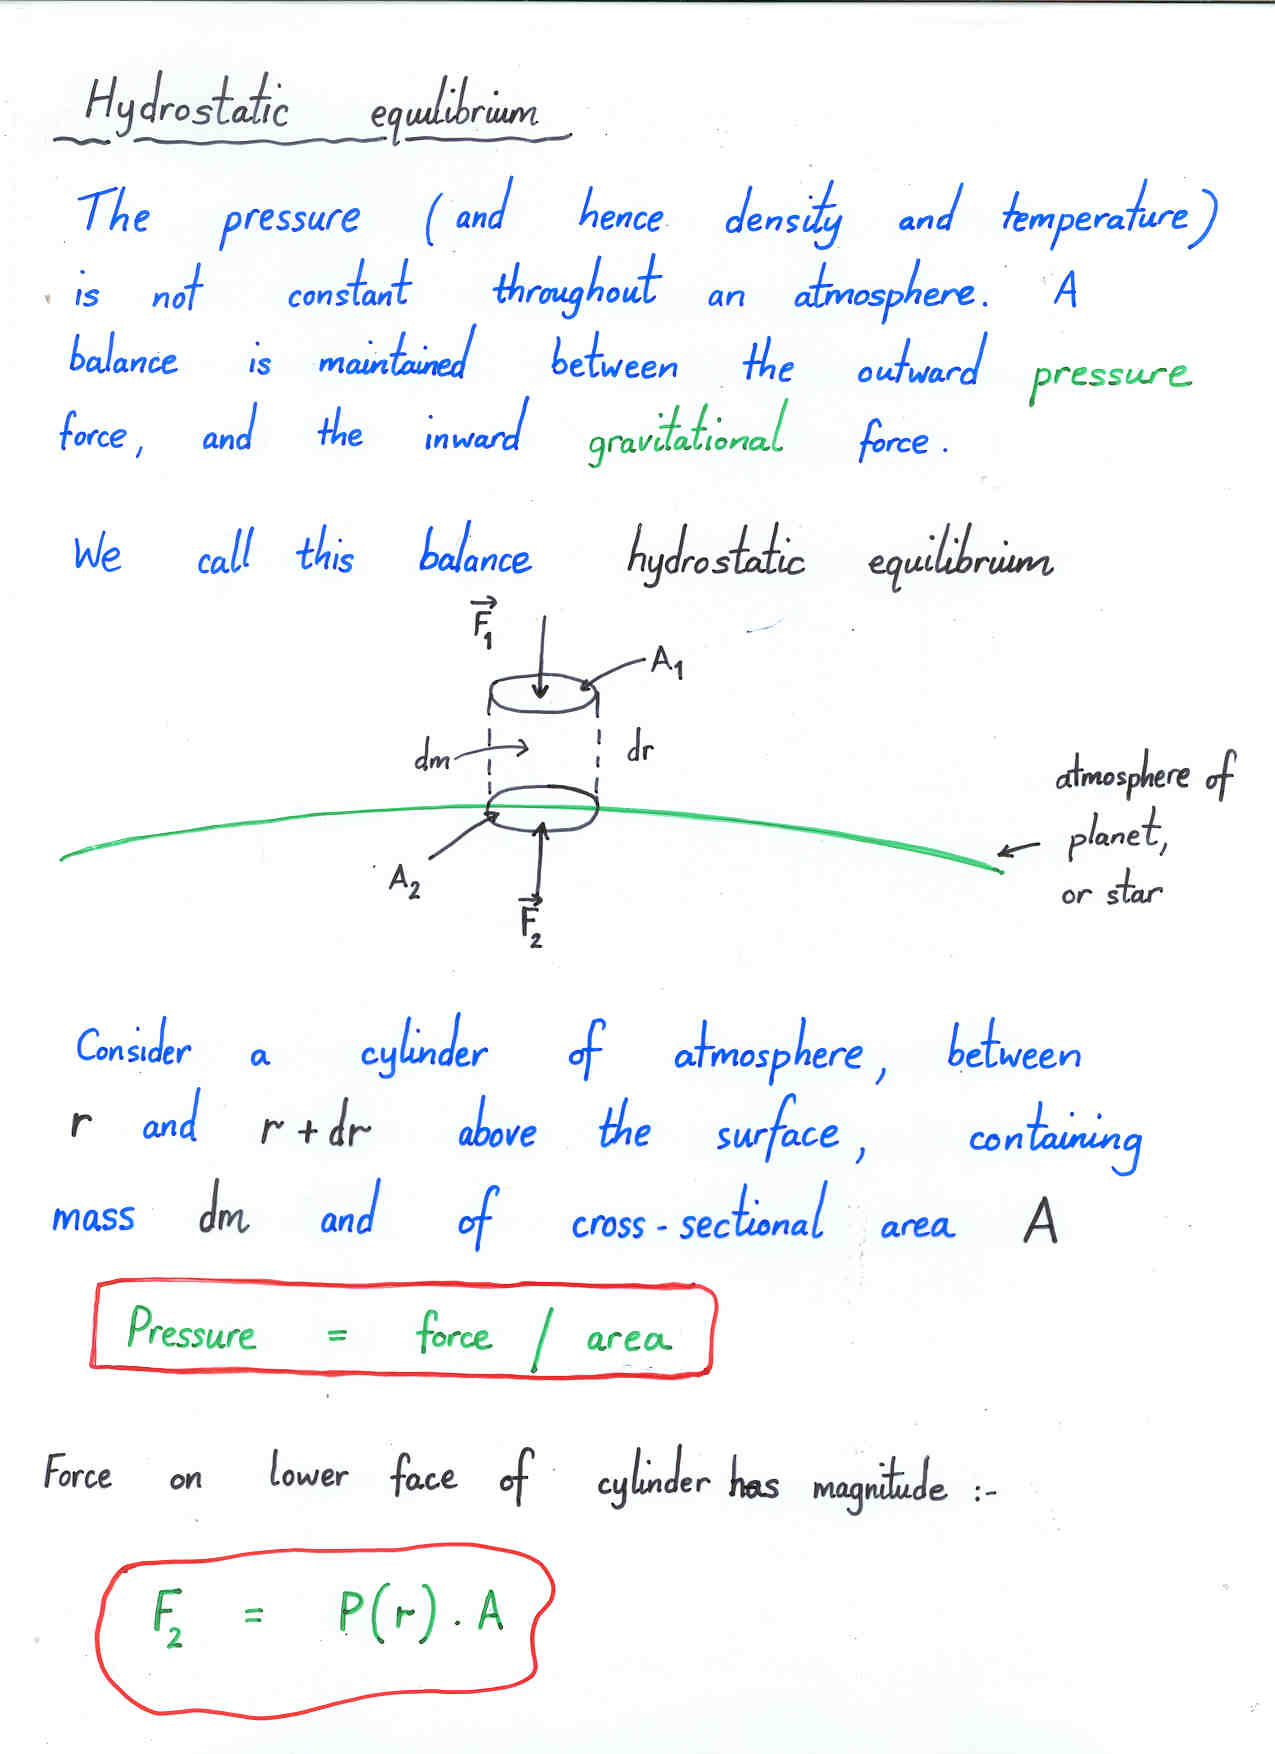 Hydrostatic equilibrium
The pressure (and hence density and temperature)
is not constant throughout an atmosphere. A
balance is maintained between the outward pressure
force, and the inward gravitational force.
We call this balance hydrostatic equilibrium
F₁
A₁
dm
dr
atmosphere of
planet,
or star
A₂
F₂
Consider a cylinder of atmosphere, between
r and r + dr above the surface, containing
mass dm and of cross-sectional area A
Pressure = force / area
Force on lower face of cylinder has magnitude :-
F₂ = P(r) . A